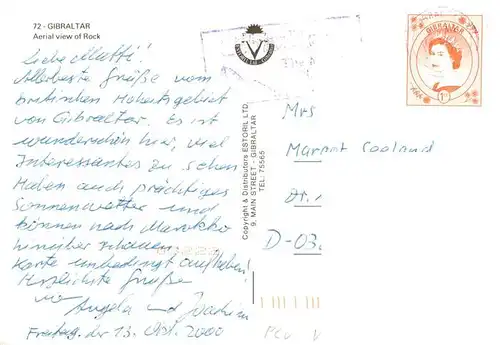 72 - GIBRALTAR
Aerial view of Rock
Liebe Mutti!
Allerbeste Grüße vom
britischen Hoheitsgebiet
von Gibraltar. Es ist
wunderschön hier, viel
Interessantes zu sehen
Haben auch prächtiges
Sonnenwetter und
können nach Marokko
hinüber schauen.
Karte unbedingt aufheben!
Herzlichste Grüße
von Angela und Joachim
Freitag, der 13. Okt. 2000
Copyright & Distributors ESTORIL LTD.
9, MAIN STREET - GIBRALTAR
TEL: 75565
GIBRALTAR
Mrs
D-03